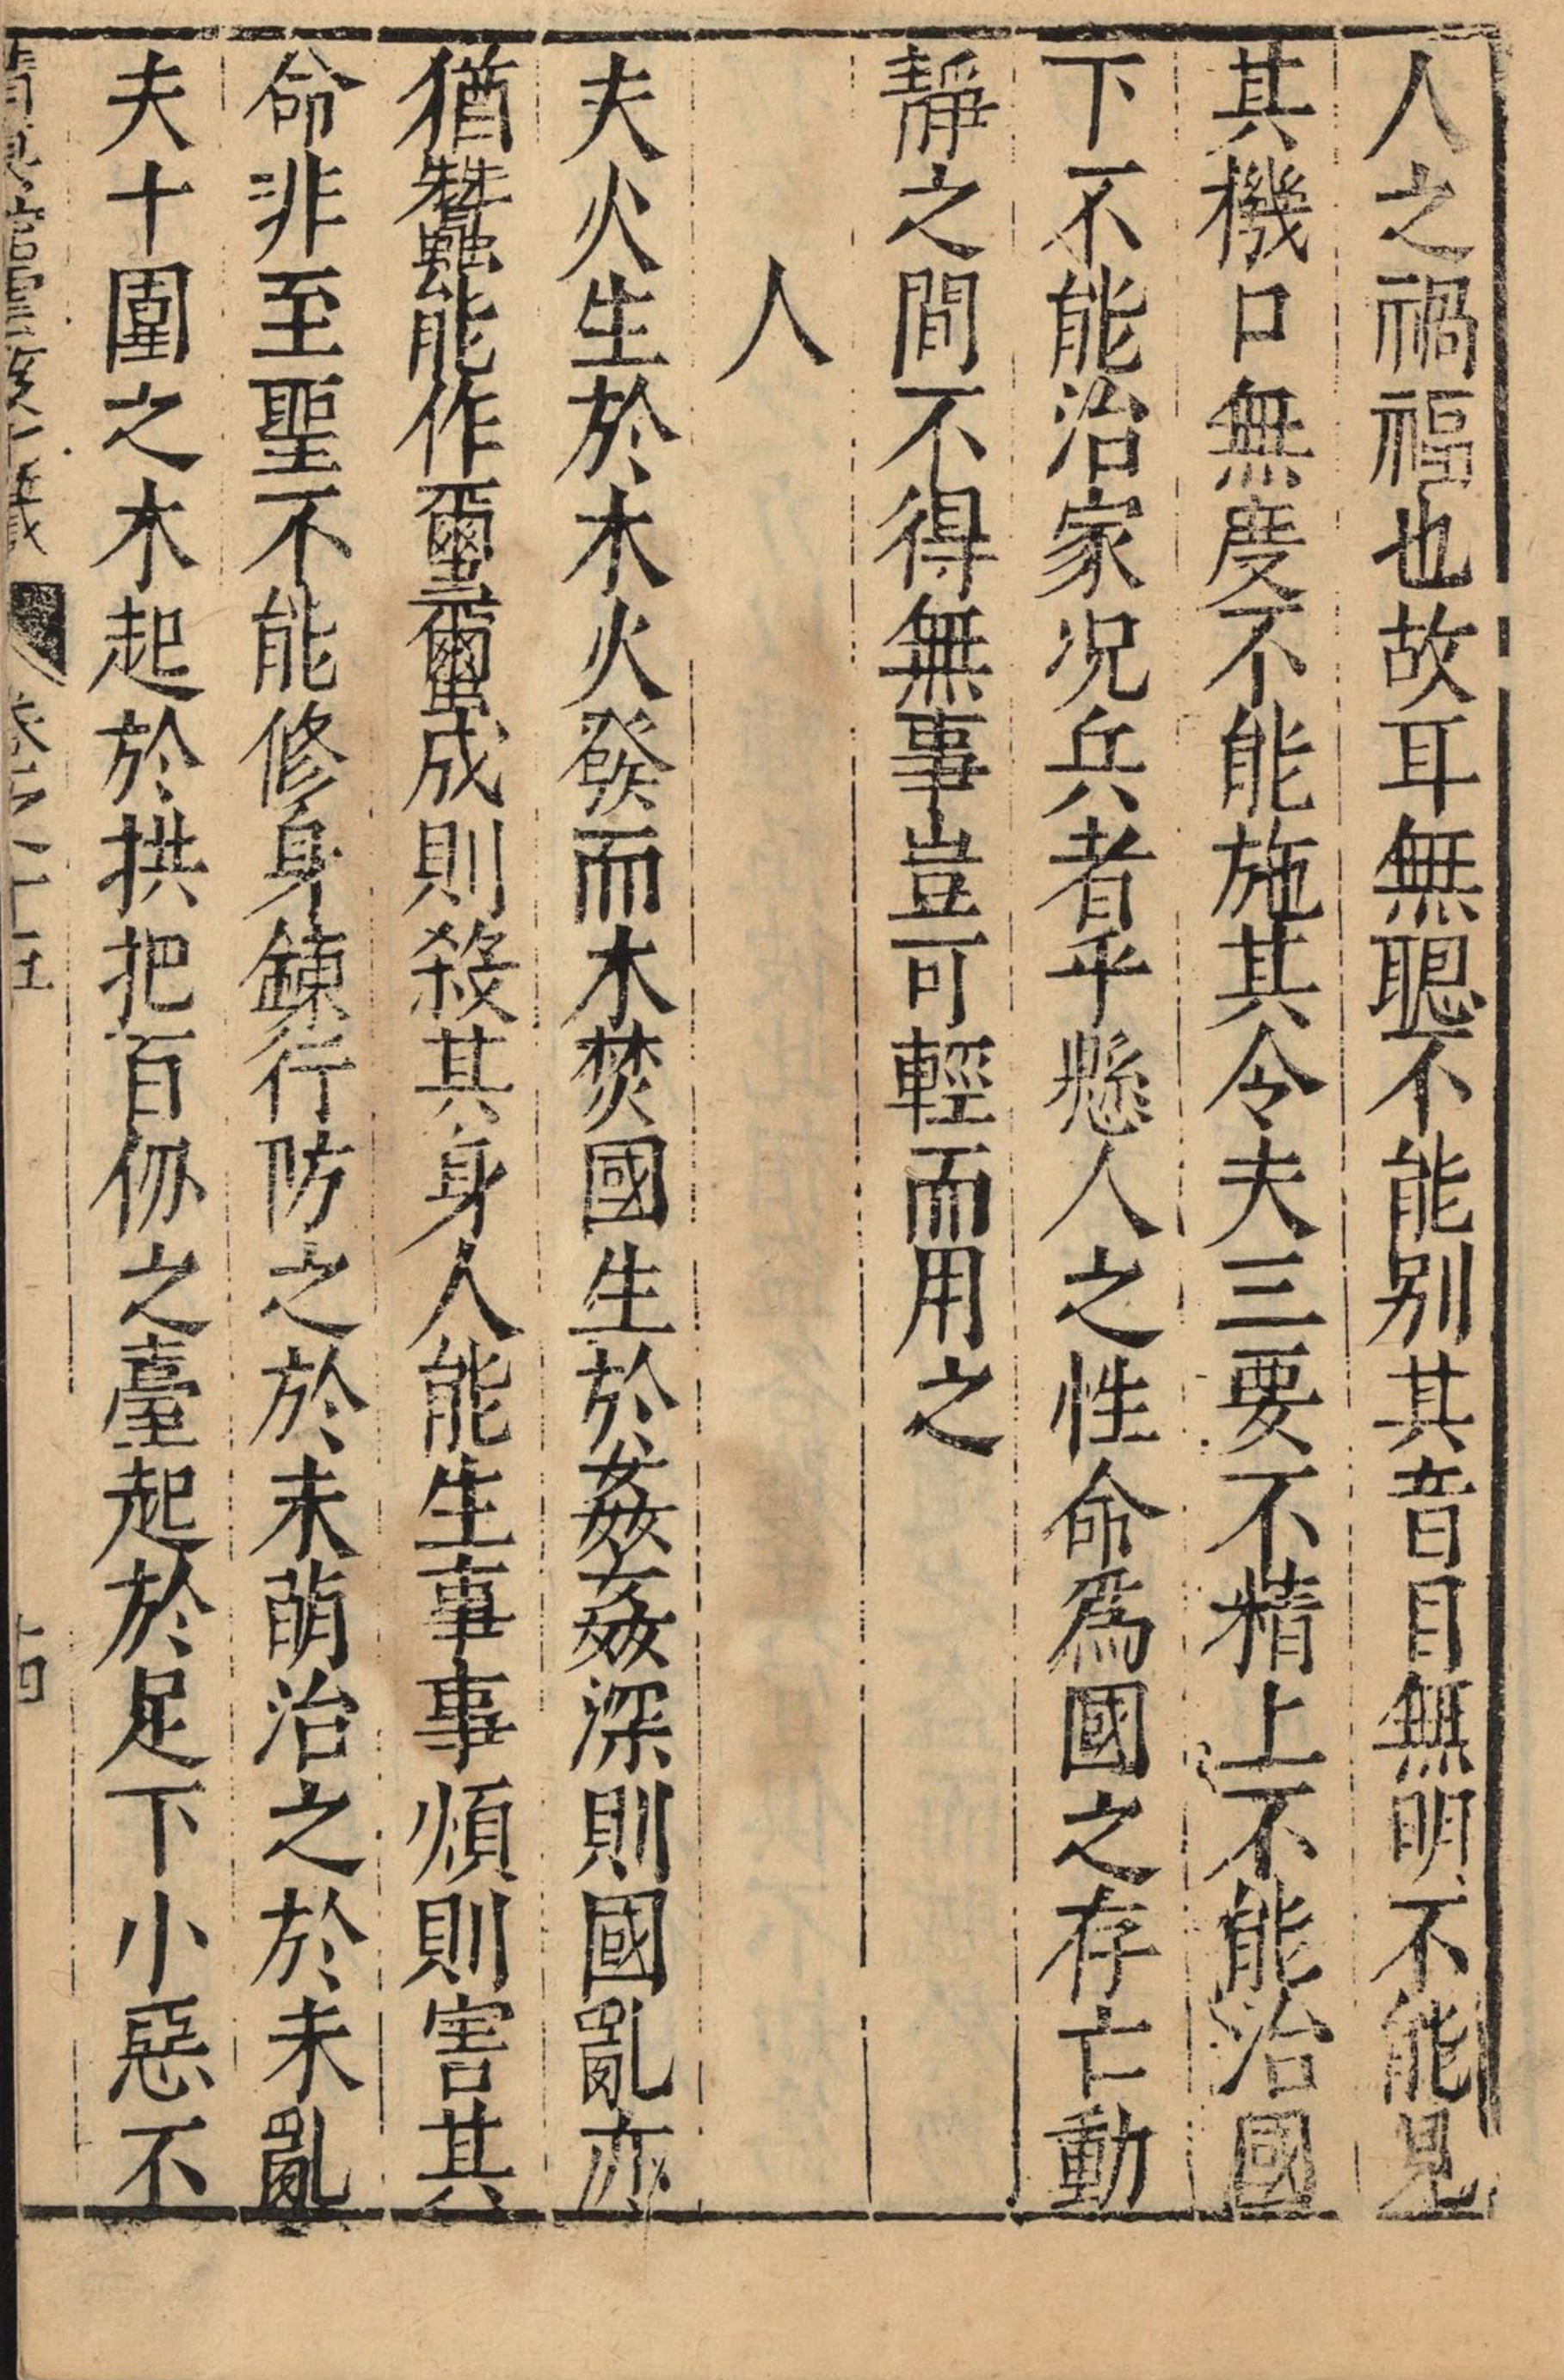 人之禍福也故耳無聰不能别其音目無明不能見
其機口無度不能施其令夫三要不精上不能治國
下不能治家况兵者乎懸人之性命爲國之存亡動
靜之間不得無事豈可輕而用之
人
夫火生於木火發而木焚國生於姦姦深則國亂亦
猶蠶能作璽蠒成則殺其身人能生事事煩則害其
命非至聖不能修身鍊行防之於未萌治之於未亂
夫十圍之木起於拱把百仞之臺起於足下小惡不
十四